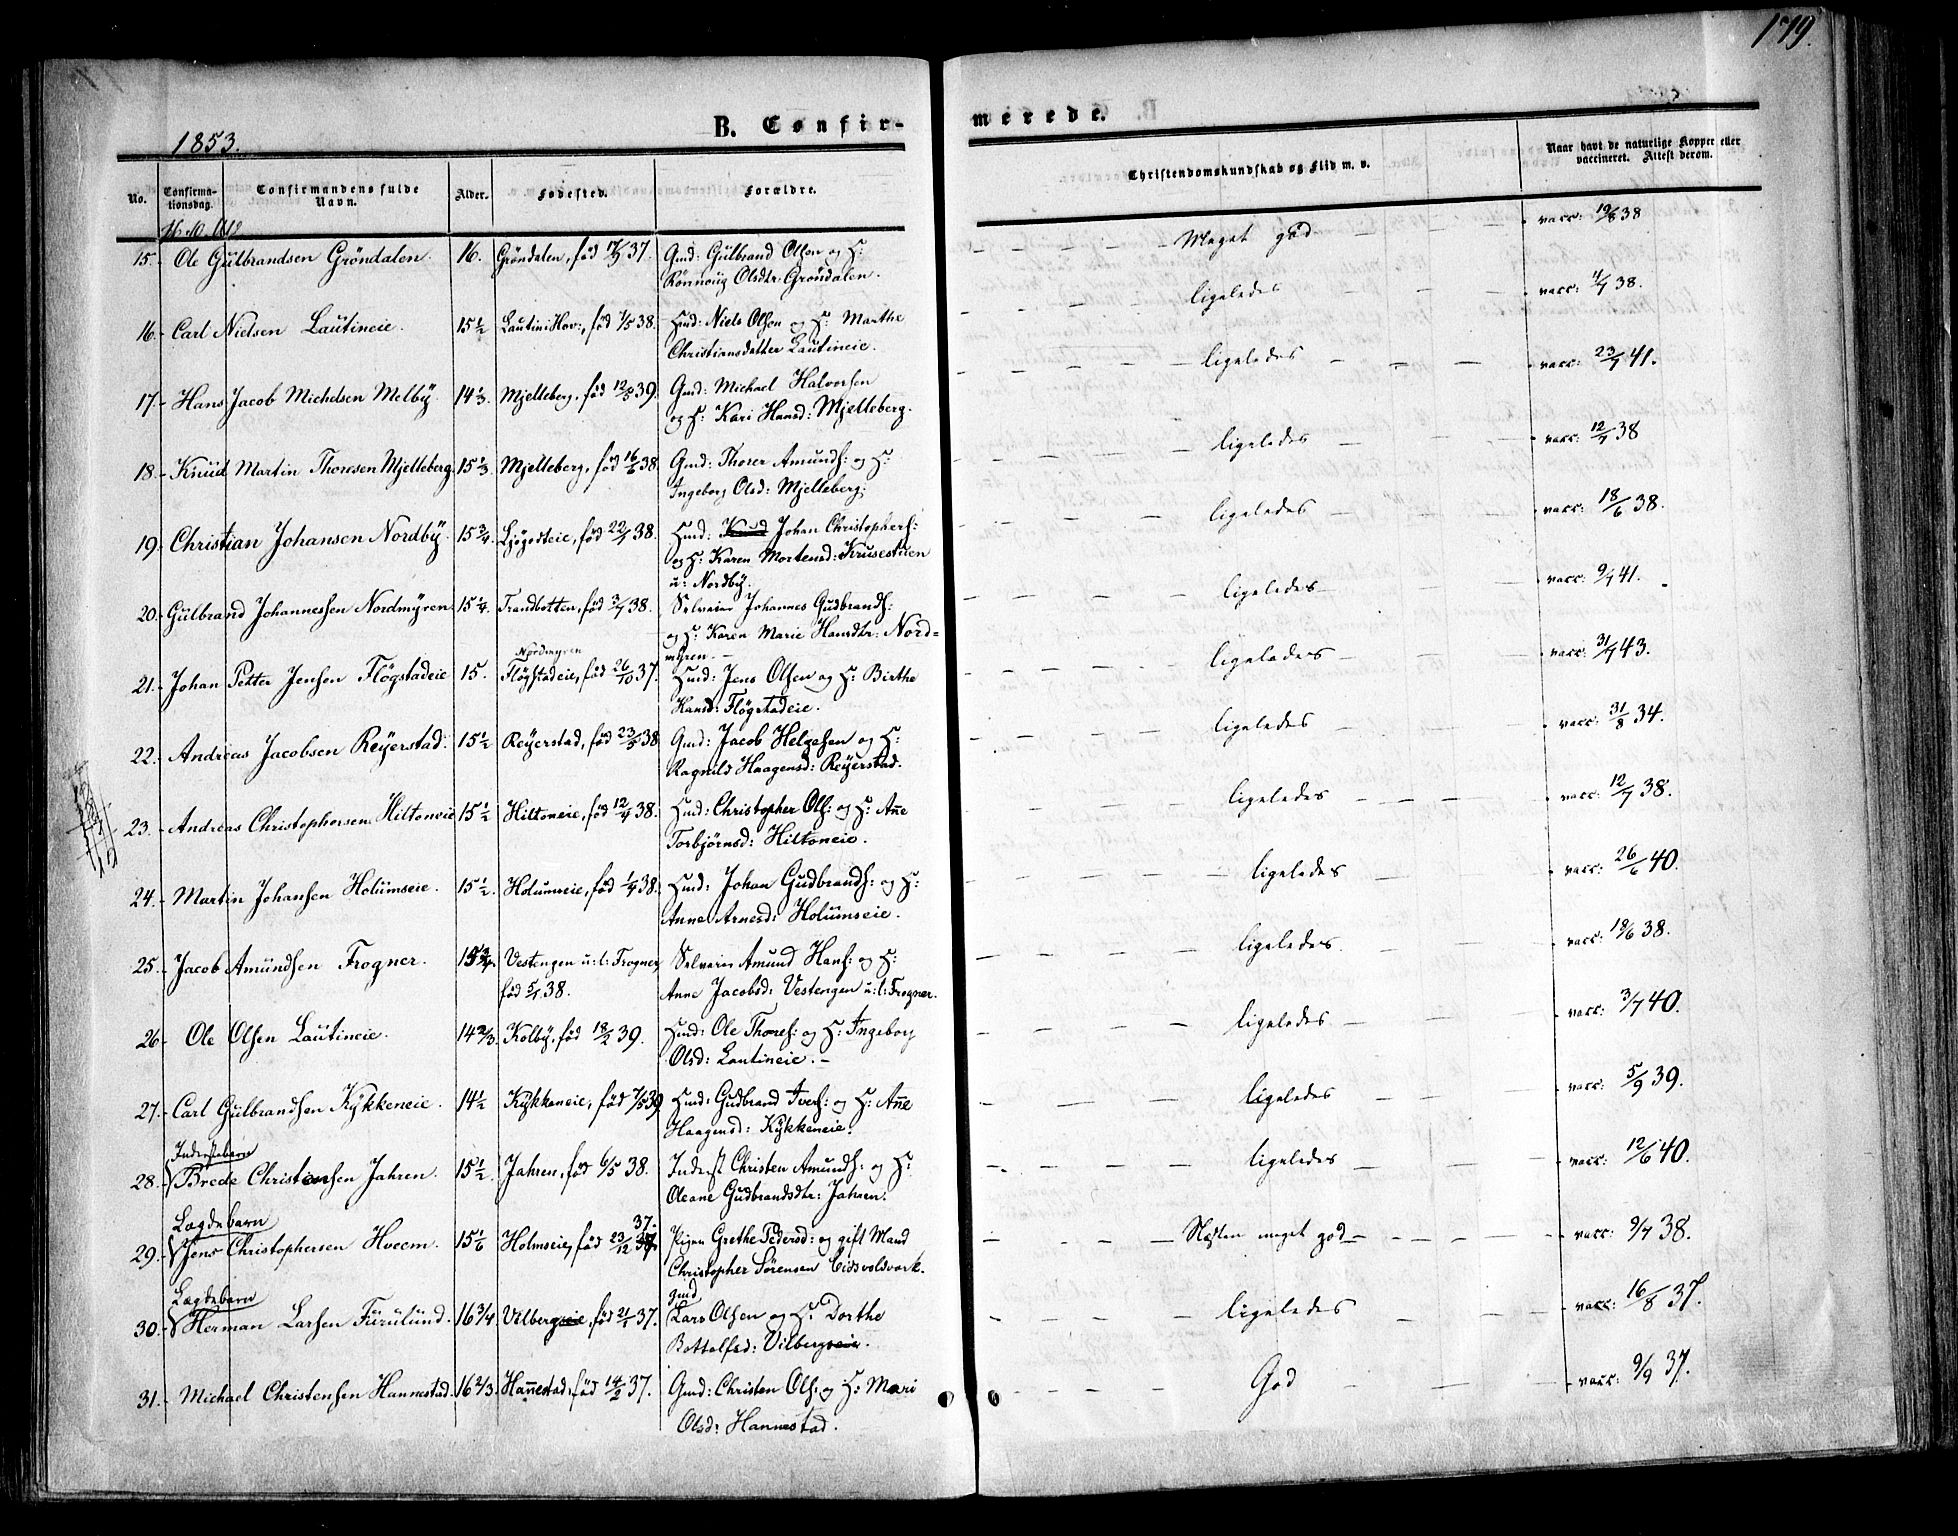 179.
1853.
B. Confir-
merede.
No.
Confirma-
tionsdag.
Confirmandens fulde
Navn.
Alder.
Fødested.
Forældre.
Christendomskundskab og Flid m. v.
Naar havt de naturlige Kopper eller
vaccineret. Attest derom.
15. Ole Gülbrandsen Gröndalen. 16. Gröndalen, fød 37. Gmd: Gülbrand Olsen og H: Meget god vacc: 38
Rönnoüg Olsdtr: Gröndalen.
16. Carl Nielsen Laütineie. 15½ Lautini Hov:, fød 1/5 38. Hmd: Niels Olsen og H: Marthe ligeledes vacc: 4/7 38.
Christiansdatter Lautineie.
17. Hans Jacob Michelsen Melby. 14⅓. Mjelleberg, fød 12/5 39. Gmd: Michael Halvorsen ligeledes vacc: 23/7 41.
og H: Kari Hansd: Mjelleberg.
18. Knüd Martin Thoresen Mjelleberg. 15⅓. Mjelleberg, fød 16/6 38. Gmd: Thorer Amunds: og H: ligeledes vacc: 12/7 38
Ingeborg Olsd: Mjelleberg.
19. Christian Johansen Nordby. 15¾. fød 22/1 38. Hmd: Knud Johan Christophers: ligeledes vacc: 18/6 38.
og H: Karen Mortensd: Krusestuen
u: Nordby.
20. Gülbrand Johannessen Nordmyren 15¼. Trandbotten, fød 3/7 38. Selveier Johannes Gudbrands: ligeledes vacc: 9/7 41.
og H: Karen Marie Hansdtr: Nord=
myren.
Nordmyren
21. Johan Petter Jensen Flögstadeie 15. Flögstadeie, fød 26/10 37. Hmd: Jens Olsen og H: Birthe ligeledes vacc: 31/7 43.
Hansd: Flögstadeie.
22. Andreas Jacobsen Reyerstad. 15½ Reyerstad, fød 23/5 38 Gmd: Jacob Helgesen og H: ligeledes vacc: 31/8 34.
Ragnild Haagensd: Reyerstad.
23. Andreas Christophersen Hiltoneie 15½ Hiltoneie, fød 12/4 38. Hmd: Christopher Ols: og H: Anne ligeledes vacc: 12/7 38.
Torbjörnsd: Hiltoneie.
24. Martin Johansen Holümseie. 15½. Holumseie, fød 1/4 38. Hmd: Johan Gudbrands: og H: ligeledes vacc: 26/6 40.
Anne Arnesd: Holümseie.
25. Jacob Amündsen Frogner. 15¾. Vestengen u: l: Frogner, Selveier Amund Hans: og H: ligeledes vacc: 18/6 38.
fød 5/1 38. Anne Jacobsd: Vestengen u: l: Frogner.
26. Ole Olsen Laütineie. 14⅔ Kolby, fød 18/2 39. Hmd: Ole Thores: og H: Ingeborg ligeledes vacc: 3/7 40.
Olsd: Lautineie.
27. Carl Gülbrandsen Kykkeneie. 14½ Kykkeneie, fød 7/5 39 Hmd: Gudbrand Ivers: og H: Anne ligeledes vacc: 5/9 39.
Haagensd: Kykkeneie.
Inderstebarn
28. Brede Christensen Jahren. 15½. Jahren, fød 6/5 38. Inderst Christen Amunds: og H: ligeledes vacc: 12/6 40.
Oleane Gudbrandsdtr: Jahren.
Lægdebarn
37.
29. Jens Christophersen Hveem. 15⅙ Holmseie, fød 23/12 Pigen Grethe Pedersd: og gift Mand Næsten meget god vacc: 9/7 38.
Christopher Sörensen Eidsvoldsværk.
Lægdebarn
gmd
30. Herman Larsen Fürülünd. 16 3/4 Vilbergseie, fød 21/1 37. Lars Olsen og H: Dorthe ligeledes vacc: 16/8 37.
Bottolfsd: Vilbergseie.
31. Michael Christensen Hannestad. 16⅔. Hannestad, fød 14/2 37. Gmd: Christen Ols: og H: Mari God vacc: 9/9 37.
Olsd: Hannestad.